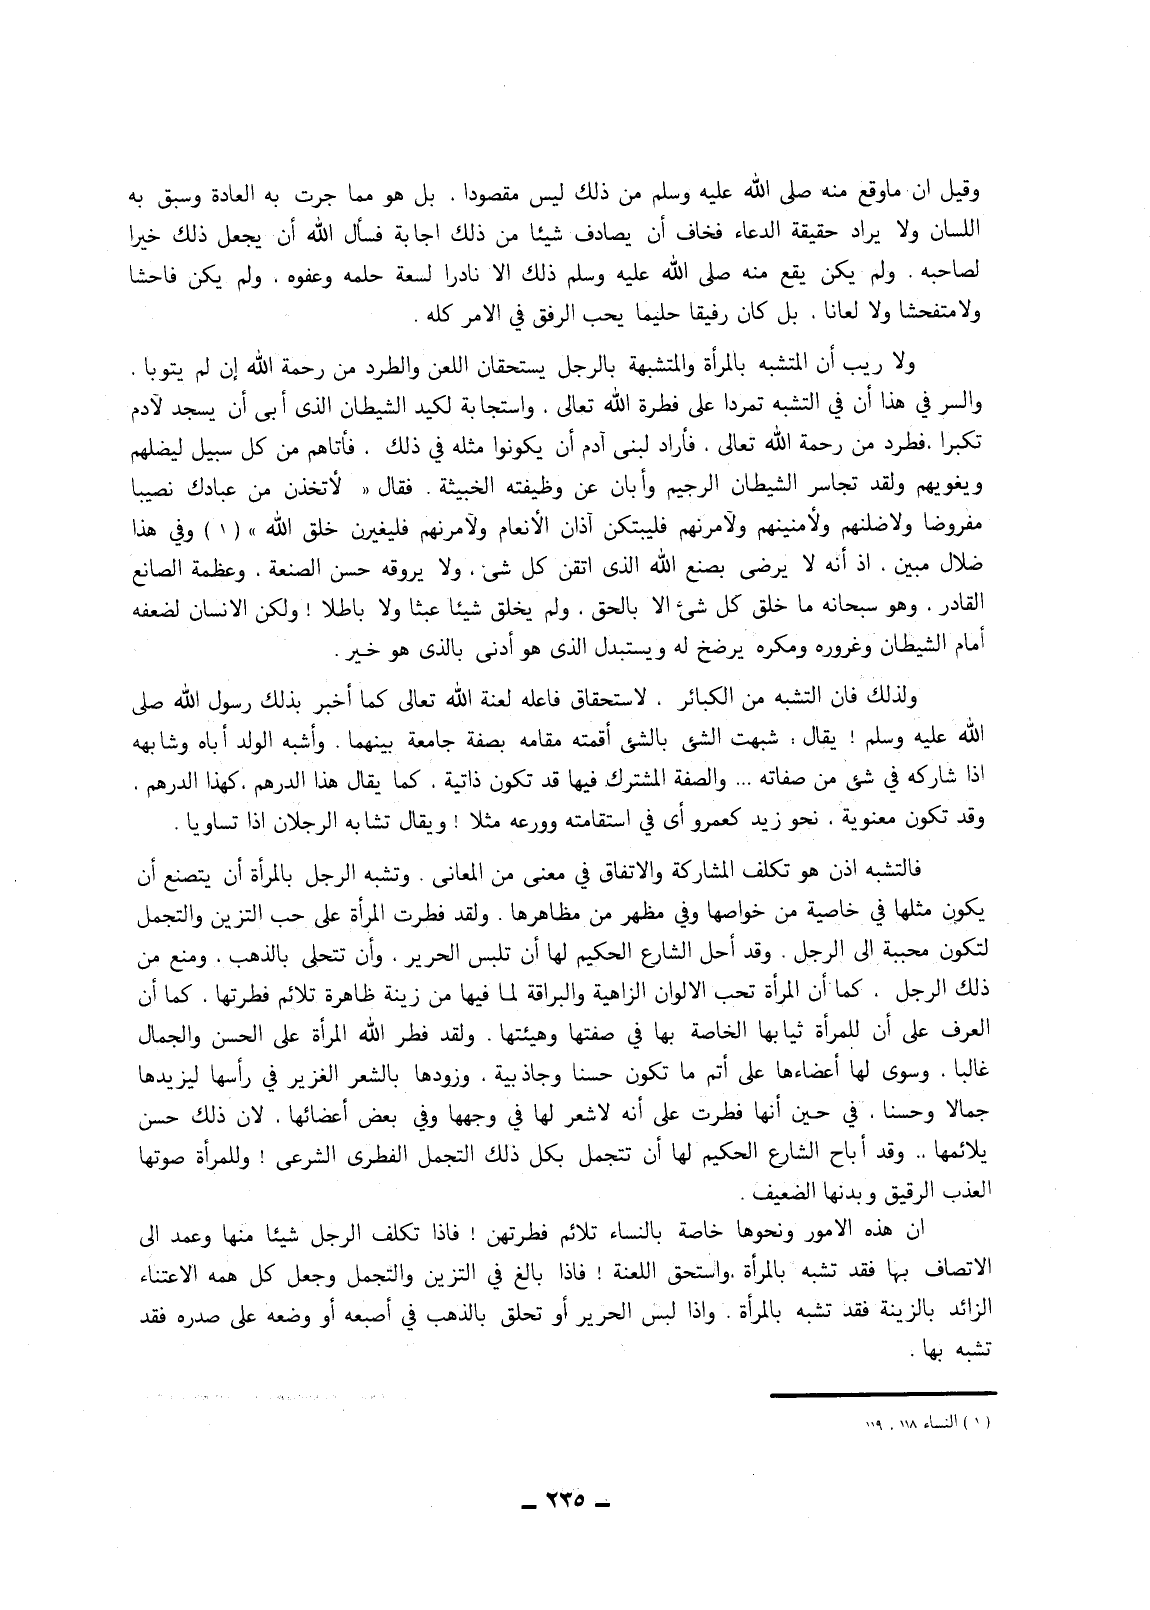 وقيل ان ماوقع منه صلى الله عليه وسلم من ذلك ليس مقصودا ، بل هو مما جرت به العادة وسبق به
اللسان ولا يراد حقيقة الدعاء فخاف أن يصادف شيئا من ذلك اجابة فسأل الله أن يجعل ذلك خيرا
لصاحبه . ولم يكن يقع منه صلى الله عليه وسلم ذلك الا نادرا لسعة حلمه وعفوه ، ولم يكن فاحشا
ولامتفحشا ولا لعانا ، بل كان رفيقا حليما يحب الرفق في الامر كله .
ولا ريب أن المتشبه بالمرأة والمتشبهة بالرجل يستحقان اللعن والطرد من رحمة الله إن لم يتوبا .
والسر في هذا أن في التشبه تمردا على فطرة الله تعالى ، واستجابة لكيد الشيطان الذى أبى أن يسجد لآدم
تكبرا ،فطرد من رحمة الله تعالى ، فأراد لبنى آدم أن يكونوا مثله في ذلك ، فأتاهم من كل سبيل ليضلهم
ويغويهم ولقد تجاسر الشيطان الرجيم وأبان عن وظيفته الخبيثة . فقال « لأتخذن من عبادك نصيبا
مفروضا ولاضلنهم ولأمنينهم ولآمرنهم فليبتكن آذان الأنعام ولآمرنهم فليغيرن خلق الله » ( ١ ) وفي هذا
ضلال مبين ، اذ أنه لا يرضى بصنع الله الذى اتقن كل شئ ، ولا يروقه حسن الصنعة ، وعظمة الصانع
القادر ، وهو سبحانه ما خلق كل شئ الا بالحق ، ولم يخلق شيئا عبثا ولا باطلا ! ولكن الانسان لضعفه
أمام الشيطان وغروره ومكره يرضخ له ويستبدل الذى هو أدنى بالذى هو خير .
ولذلك فان التشبه من الكبائر ، لاستحقاق فاعله لعنة الله تعالى كما أخبر بذلك رسول الله صلى
الله عليه وسلم ! يقال : شبهت الشئ بالشئ أقمته مقامه بصفة جامعة بينهما . وأشبه الولد أباه وشابهه
اذا شاركه في شئ من صفاته ... والصفة المشترك فيها قد تكون ذاتية ، كما يقال هذا الدرهم ،كهذا الدرهم ،
وقد تكون معنوية ، نحو زيد كعمرو أى في استقامته وورعه مثلا ! ويقال تشابه الرجلان اذا تساويا .
فالتشبه اذن هو تكلف المشاركة والاتفاق في معنى من المعانى . وتشبه الرجل بالمرأة أن يتصنع أن
يكون مثلها في خاصية من خواصها وفي مظهر من مظاهرها . ولقد فطرت المرأة على حب التزين والتجمل
لتكون محببة الى الرجل . وقد أحل الشارع الحكيم لها أن تلبس الحرير ، وأن تتحلى بالذهب ، ومنع من
ذلك الرجل ، كما أن المرأة تحب الالوان الزاهية والبراقة لما فيها من زينة ظاهرة تلائم فطرتها ، كما أن
العرف على أن للمرأة ثيابها الخاصة بها في صفتها وهيئتها . ولقد فطر الله المرأة على الحسن والجمال
غالبا ، وسوى لها أعضاءها على أتم ما تكون حسنا وجاذبية ، وزودها بالشعر الغزير في رأسها ليزيدها
جمالا وحسنا ، في حين أنها فطرت على أنه لاشعر لها في وجهها وفي بعض أعضائها ، لان ذلك حسن
يلائمها .. وقد أباح الشارع الحكيم لها أن تتجمل بكل ذلك التجمل الفطرى الشرعى ! وللمرأة صوتها
العذب الرقيق وبدنها الضعيف .
ان هذه الامور ونحوها خاصة بالنساء تلائم فطرتهن ! فاذا تكلف الرجل شيئا منها وعمد الى
الاتصاف بها فقد تشبه بالمرأة ،واستحق اللعنة ! فاذا بالغ في التزين والتجمل وجعل كل همه الاعتناء
الزائد بالزينة فقد تشبه بالمرأة . واذا لبس الحرير أو تحلق بالذهب في أصبعه أو وضعه على صدره فقد
تشبه بها .
( ١ ) النساء ١١٨ ، ١١٩
ـ ٢٣٥ ـ